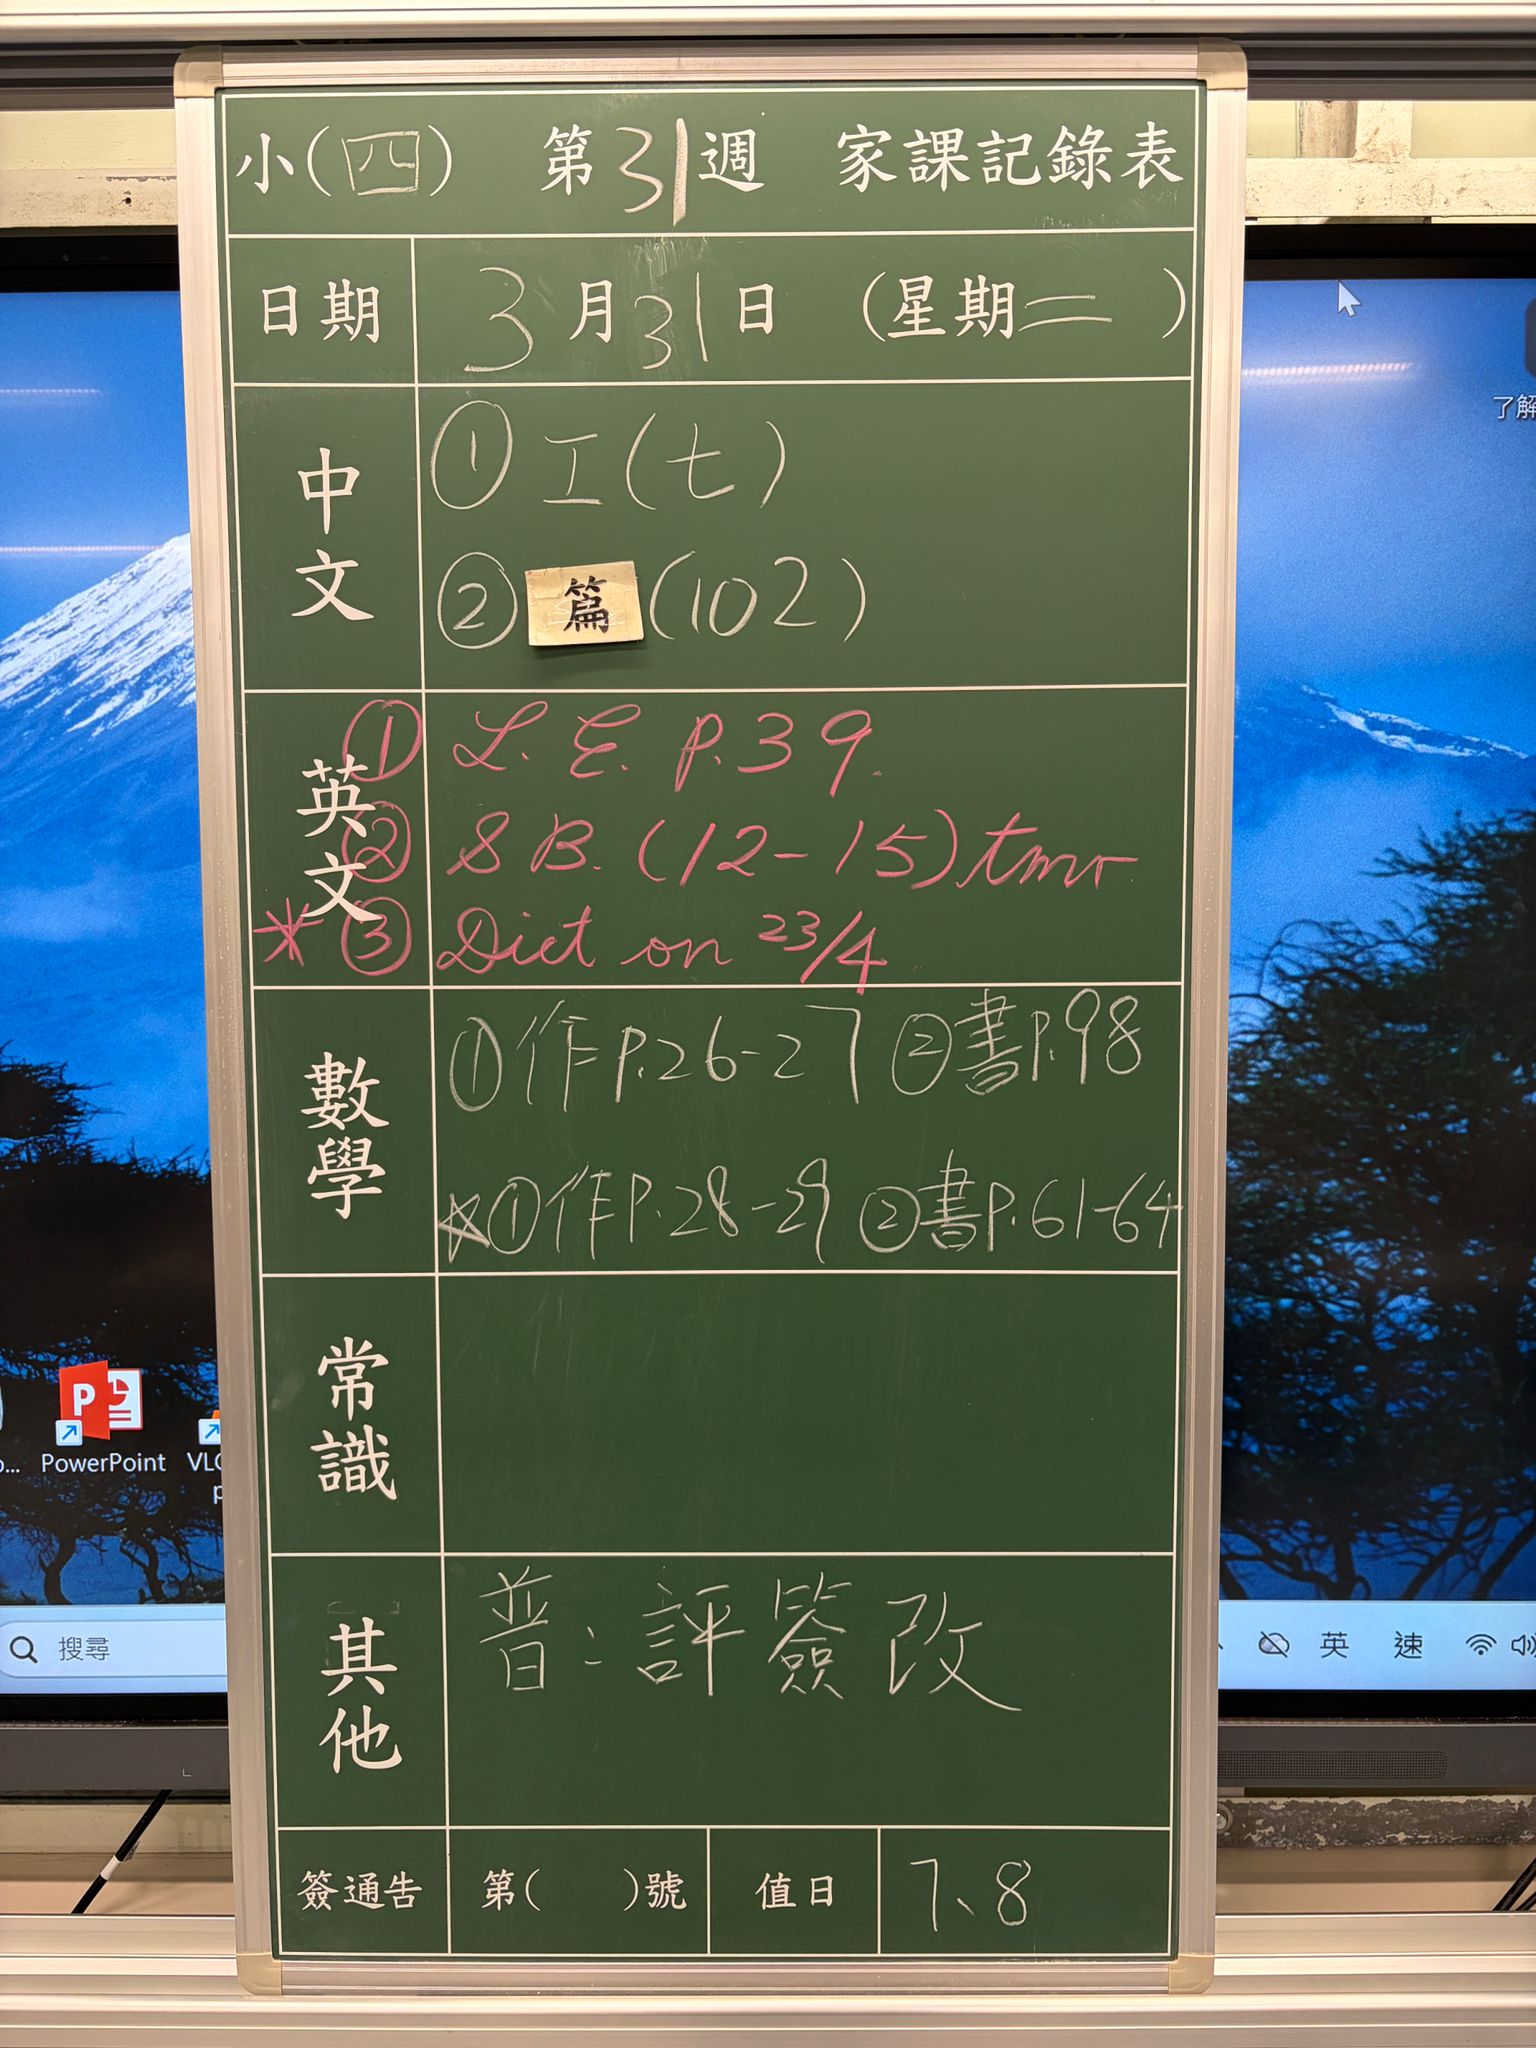 小(四) 第31週 家課記錄表
日期 3月31日 (星期二)
中文
① 工(七)
② 篇(102)
英文
① L.E. P.39.
② S B. (12-15) tmr.
* ③ Dict on 23/4
數學
① 作P.26-27 ② 書P.98
☆① 作P.28-29 ② 書P.61-64
常識
其他
普：評簽改
簽通告 第( )號 值日 7、8
了解
PowerPoint
VLC
搜尋
英 速